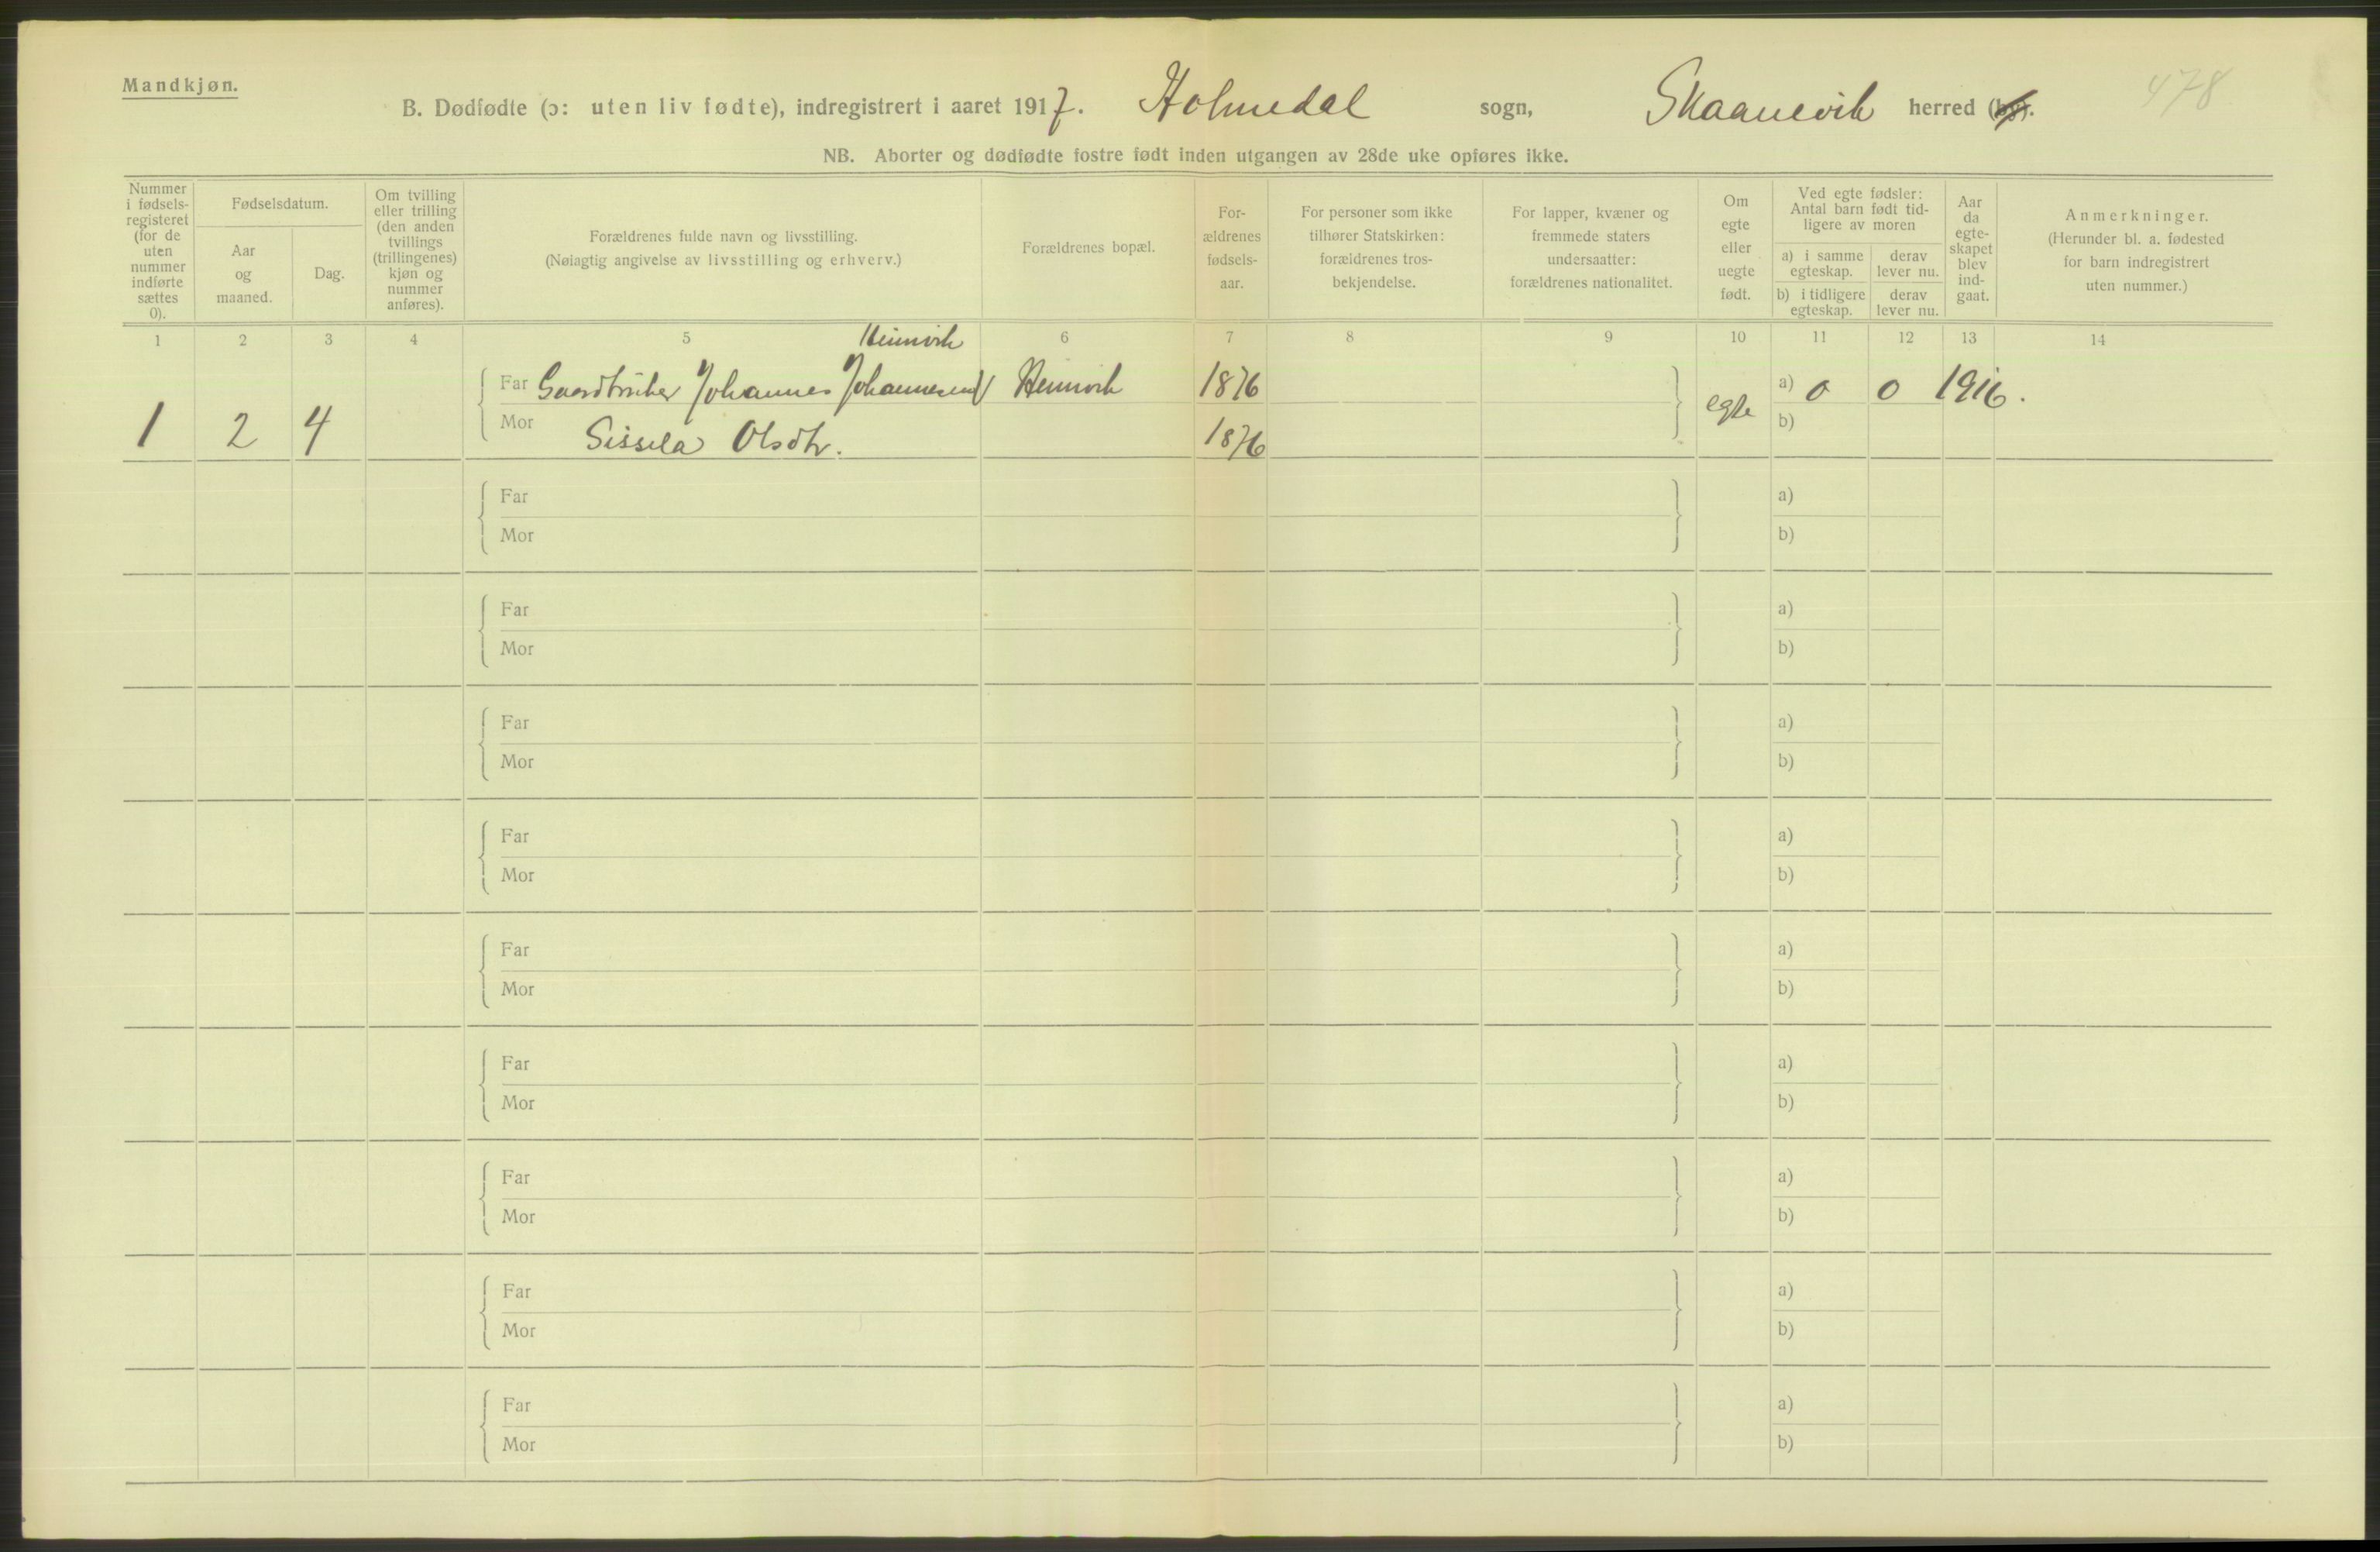 Mandkjøn.
478
B. Dødfødte (ɔ: uten liv fødte), indregistrert i aaret 1917. Holmedal sogn, Skaanevik herred (by).
NB. Aborter og dødfødte fostre født inden utgangen av 28de uke opføres ikke.
Nummer i fødsels-registeret (for de uten nummer indførte sættes 0).
Fødselsdatum.
Aar og maaned.
Dag.
Om tvilling eller trilling (den anden tvillings (trillingenes) kjøn og nummer anføres).
Forældrenes fulde navn og livsstilling.
(Nøiagtig angivelse av livsstilling og erhverv.)
Forældrenes bopæl.
For-ældrenes fødsels-aar.
For personer som ikke tilhører Statskirken: forældrenes tros-bekjendelse.
For lapper, kvæner og fremmede staters undersaatter: forældrenes nationalitet.
Om egte eller uegte født.
Ved egte fødsler: Antal barn født tid-ligere av moren
a) i samme egteskap.
derav lever nu.
b) i tidligere egteskap.
derav lever nu.
Aar da egte-skapet blev ind-gaat.
Anmerkninger.
(Herunder bl. a. fødested for barn indregistrert uten nummer.)
1 2 3 4 5 6 7 8 9 10 11 12 13 14
Heimvik
Far Gaardbruker Johannes Johannessen Heimvik 1876 a) 0 0 1916.
1 2 4 egte
Mor Sissela Olsdtr. 1876 b)
Far a)
Mor b)
Far a)
Mor b)
Far a)
Mor b)
Far a)
Mor b)
Far a)
Mor b)
Far a)
Mor b)
Far a)
Mor b)
Far a)
Mor b)
Far a)
Mor b)